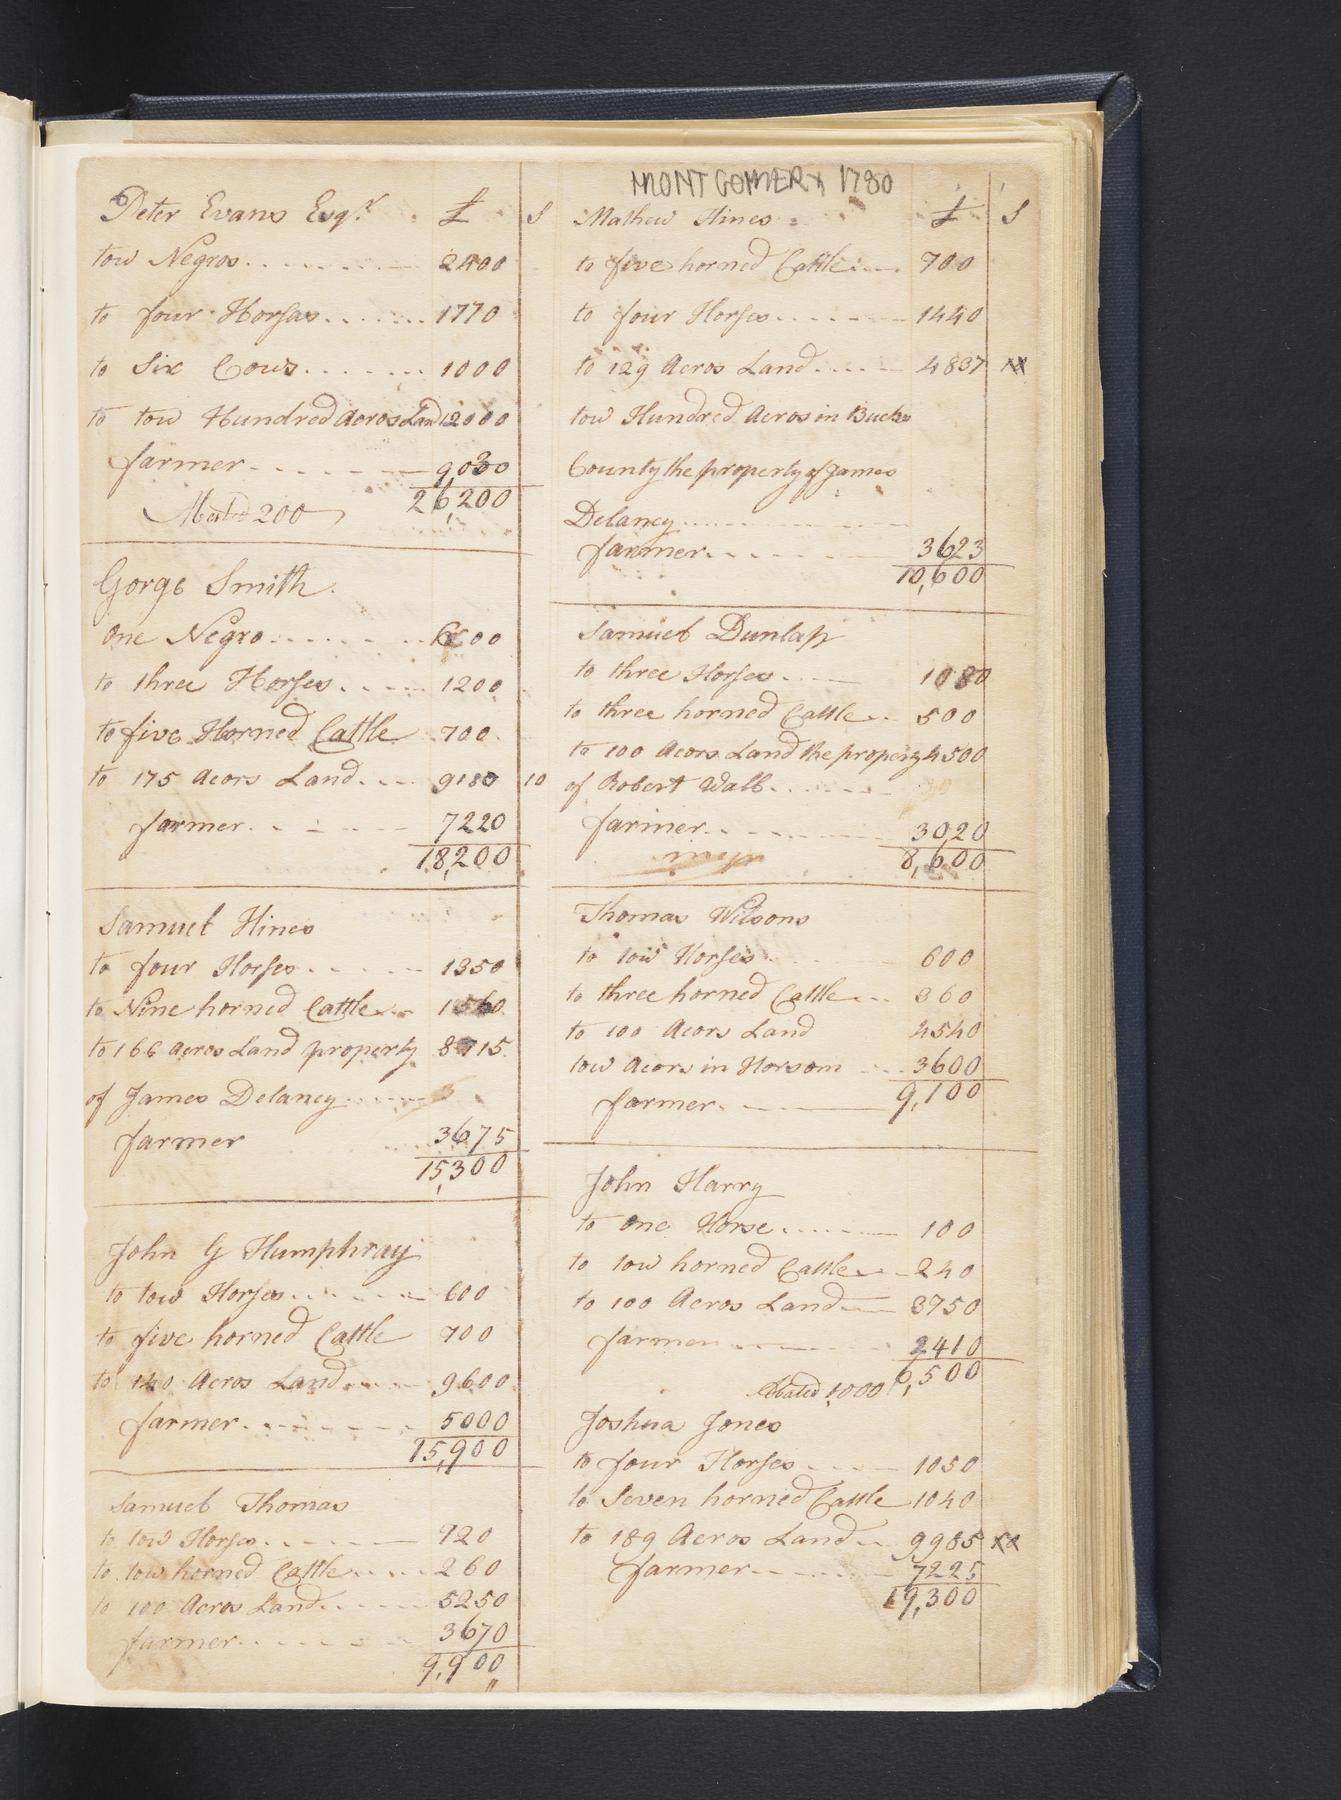 MONTGOMERY 1780
Peter Evans Esqr. £ S
tow Negros 2400
to four Horses 1770
to Six Cows 1000
to tow Hundred Acros Land 12000
farmer 9030
26,200
200
Gorge Smith
one Negro
to three Horses 1200
to five Horned Cattle 700
to 175 Acors Land 9180 10
farmer 7220
18,200
Samuel Hines
to four Horses 1350
to Nine horned Cattle 1560
to 166 Acros Land property 8715
of James Delancy
farmer 3675
15,300
John G Humphray
to tow Horses 600
to five horned Cattle 700
to 140 Acros Land 9600
farmer 5000
15,900
Samuel Thomas
to tow Horses 720
to tow horned Cattle 260
to 100 Acros Land 5250
farmer 3670
9,900
Mathew Hines £ S
to five horned Cattle 700
to four Horses 1440
to 129 Acros Land 4837
tow Hundred Acros in Bucks
County the property of James
Delancy
farmer 3623
10,600
Samuel Dunlap
to three Horses 1080
to three horned Cattle 500
to 100 Acors Land the property 4500
of Robert Wall
farmer 3020
8,600
Thomas Wilsons
to tow Horses 600
to three horned Cattle 360
to 100 Acors Land 4540
tow Acors in Horsom 3600
farmer 9,100
John Harry
to one Horse 100
to tow horned Cattle 240
to 100 Acros Land 3750
farmer 2410
6,500
Abated 1,000
Joshua Jones
to four Horses 1050
to Seven horned Cattle 1040
to 189 Acros Land 9985
farmer 7225
19,300